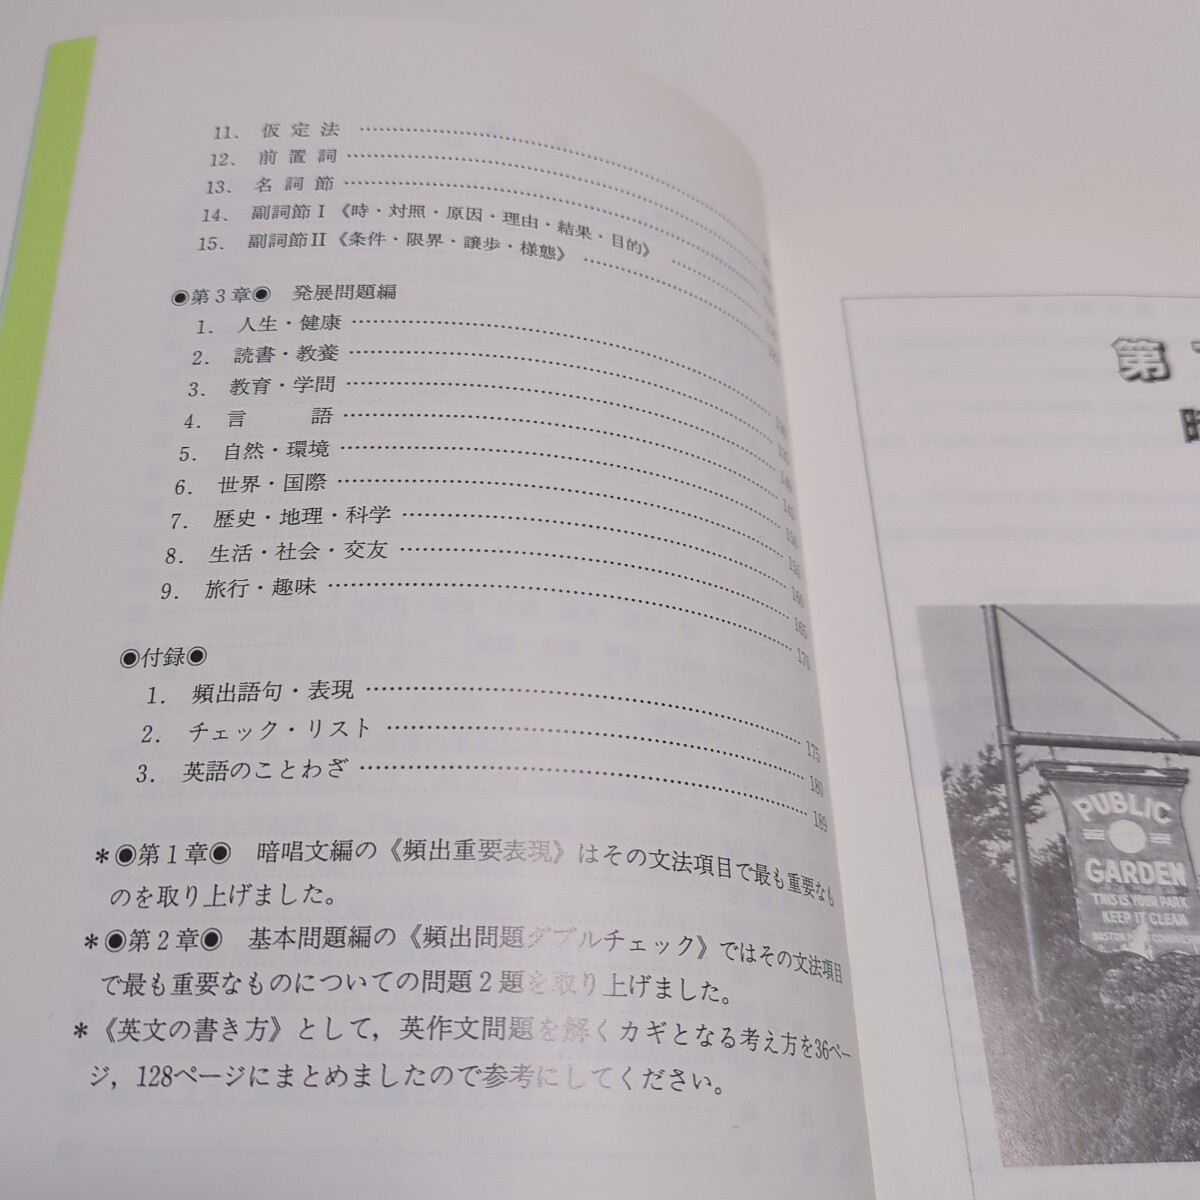 11. 仮定法
12. 前置詞
13. 名詞節
14. 副詞節Ⅰ《時・対照・原因・理由・結果・目的》
15. 副詞節Ⅱ《条件・限界・譲歩・様態》
◉第3章◉ 発展問題編
1. 人生・健康
2. 読書・教養
3. 教育・学問
4. 言語 140
5. 自然・環境 145
6. 世界・国際 150
7. 歴史・地理・科学 155
8. 生活・社会・交友 160
9. 旅行・趣味 165
170
◉付録◉
1. 頻出語句・表現 175
2. チェック・リスト 180
3. 英語のことわざ 189
*◉第1章◉ 暗唱文編の《頻出重要表現》はその文法項目で最も重要なも
のを取り上げました。
*◉第2章◉ 基本問題編の《頻出問題ダブルチェック》ではその文法項目
で最も重要なものについての問題2題を取り上げました。
*《英文の書き方》として，英作文問題を解くカギとなる考え方を36ペー
ジ，128ページにまとめましたので参考にしてください。
第
PUBLIC
GARDEN
THIS IS YOUR PARK
KEEP IT CLEAN